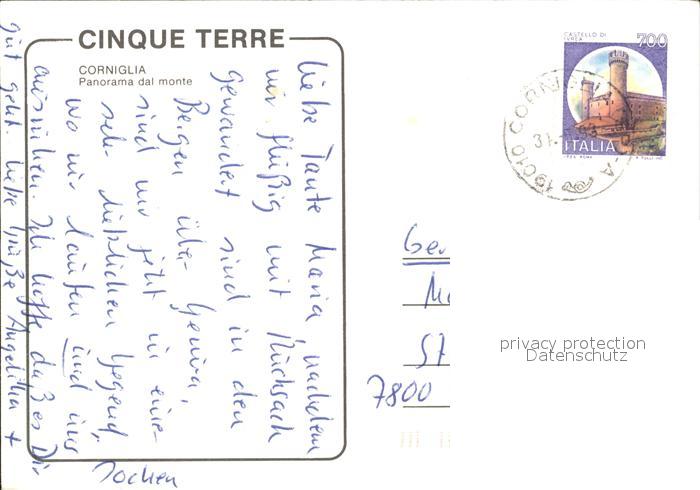 CINQUE TERRE
CORNIGLIA
Panorama dal monte
Liebe Tante Maria, nachdem
wir fleißig mit Rucksack
gewandert sind in den
Bergen über Genua,
sind wir jetzt in einer
sehr lieblichen Gegend,
wo wir laufen und uns
ausruhen. Ich hoffe daß es Dir
gut geht. Liebe Grüße Angelika +
Jochen
CASTELLO DI
IVREA
700
ITALIA
19010 CORNIGLIA
31.
Ger
M
St
7800
privacy protection
Datenschutz